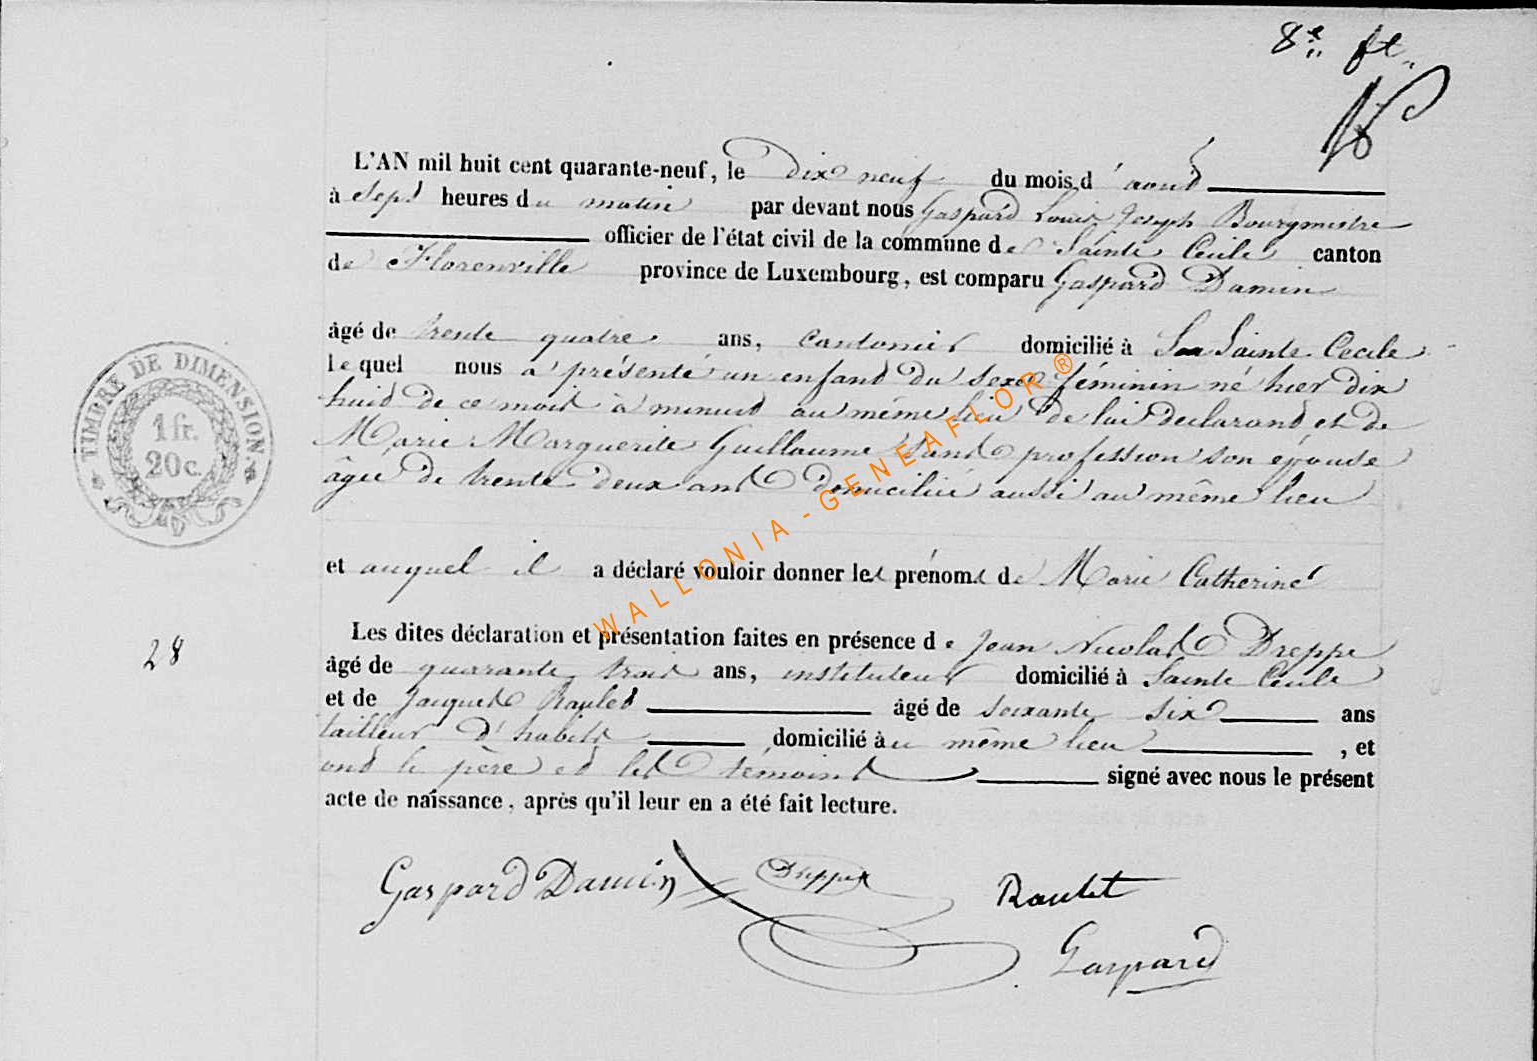 8e ft
L'AN mil huit cent quarante-neuf, le dix neuf du mois d'aout
à sept heures du matin par devant nous Gaspard Louis Joseph Bourgmestre
officier de l'état civil de la commune de Sainte Cecile canton
de Florenville province de Luxembourg, est comparu Gaspard Damin
âgé de trente quatre ans, cantonier domicilié à Sainte Cecile
lequel nous a présenté un enfant du sexe féminin né hier dix
huit de ce mois à minuit au même lieu de lui declarant et de
Marie Marguerite Guillaume sans profession son épouse
âgée de trente deux ans domiciliée aussi au même lieu
et auquel il a déclaré vouloir donner les prénoms de Marie Catherine
Les dites déclaration et présentation faites en présence de Jean Nicolas Dreppe
âgé de quarante trois ans, instituteur domicilié à Sainte Cecile
et de Jacques Raulet âgé de soixante six ans
tailleur d'habits domicilié au même lieu, et
ont le père et les témoins signé avec nous le présent
acte de naissance, après qu'il leur en a été fait lecture.
Gaspard Damin Dreppe Raulet
Gaspard
TIMBRE DE DIMENSION
1 fr.
20 c.
28
WALLONIA-GENEAFLOR ®